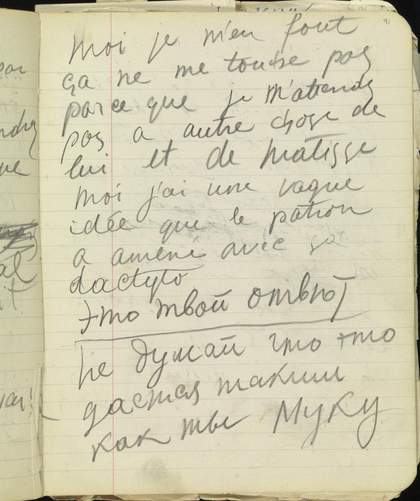 moi je m'en fout
ça ne me touche pas
parce que je m'atends
pas a autre chose de
lui et de matisse
moi j'ai une vague
idée que le patron
a amené avec sa
dactylo
это твой ответ
Не думай что это
дастся таким
как ты муку